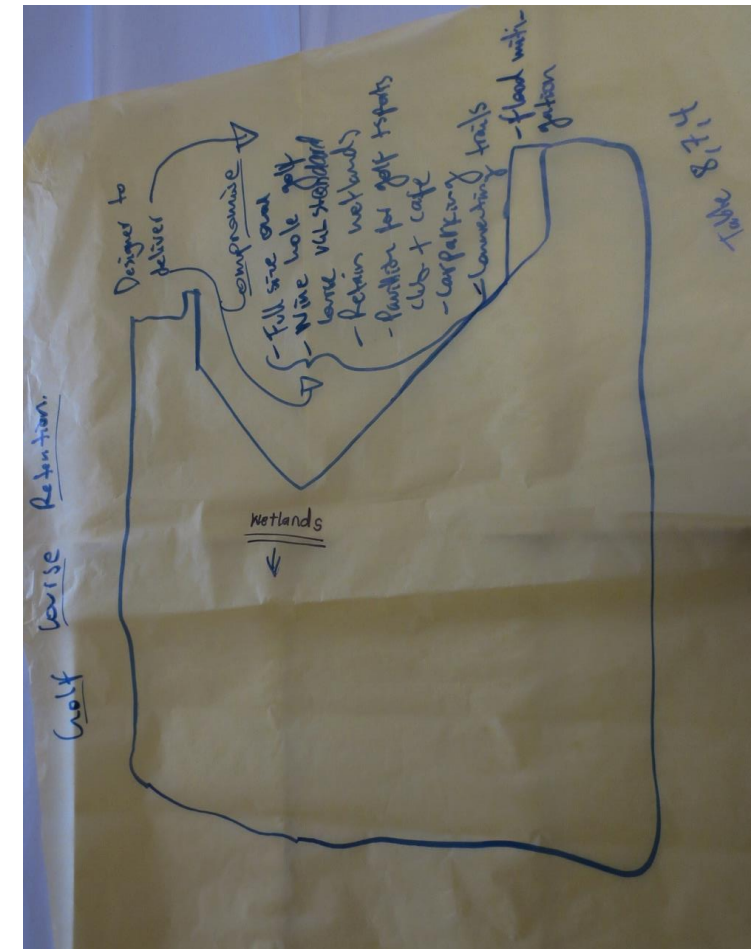 Golf Course Retention.
Designer to
deliver
Compromise
- Full size oval
- Nine hole golf
course VGL standard
- Retain wetlands
- Pavillion for golf + sports
club + cafe
- Carparking
- Connecting trails
- flood miti-
gation
Wetlands
Table 8,7,4